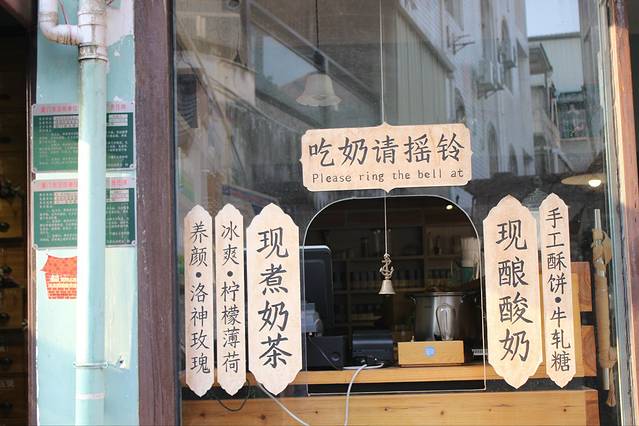 吃奶请摇铃
Please ring the bell at
养颜·洛神玫瑰
冰爽·柠檬薄荷
现煮奶茶
现酿酸奶
手工酥饼·牛轧糖